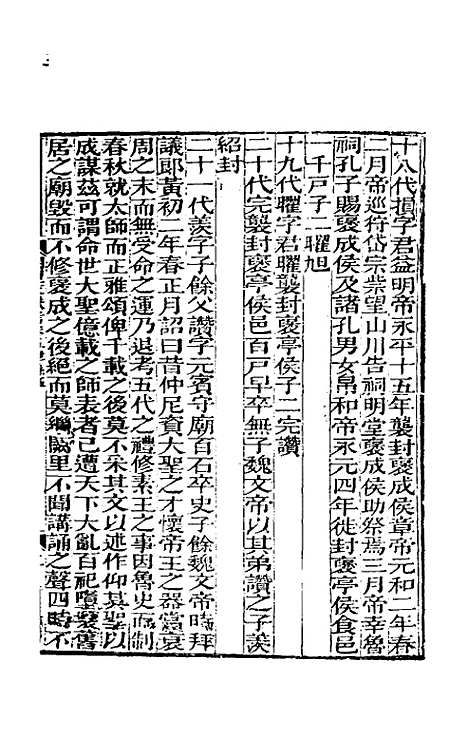 十八代損字君益明帝永平十五年襲封褒成侯章帝元和二年春
二月帝巡狩岱宗柴望山川告祠明堂褒成侯助祭焉三月帝幸魯
祠孔子賜褒成侯及諸孔男女帛和帝永元四年徙封褒亭侯食邑
一千戸子二曜旭
十九代曜字君曜襲封褒亭侯子二完讚
二十代完襲封褒亭侯邑百戸早卒無子魏文帝以其弟讚之子羨
紹封
二十一代羨字子餘父讚字元賓守廟百石卒史子餘魏文帝時拜
議郎黃初二年春正月詔曰昔仲尼資大聖之才懷帝王之器當衰
周之末而無受命之運乃退考五代之禮修素王之事因魯史而制
春秋就太師而正雅頌俾千載之後莫不采其文以述作仰其聖以
成謀茲可謂命世大聖億載之師表者已遭天下大亂百祀墮壞舊
居之廟毀而不修褒成之後絕而莫繼闕里不聞講誦之聲四時不